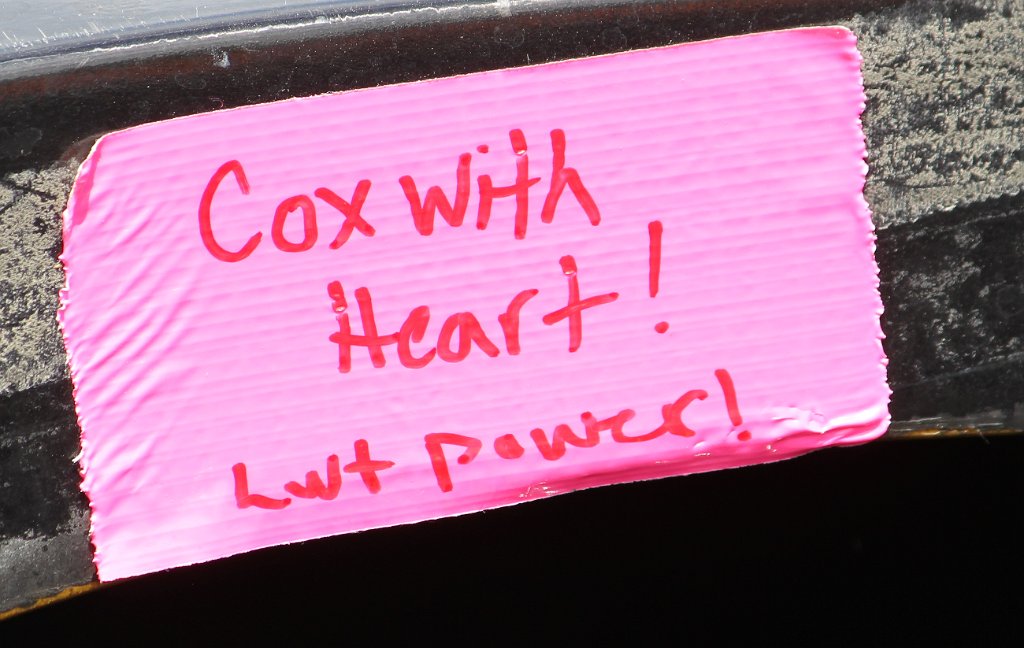 Cox with
Heart!
Lwt power!